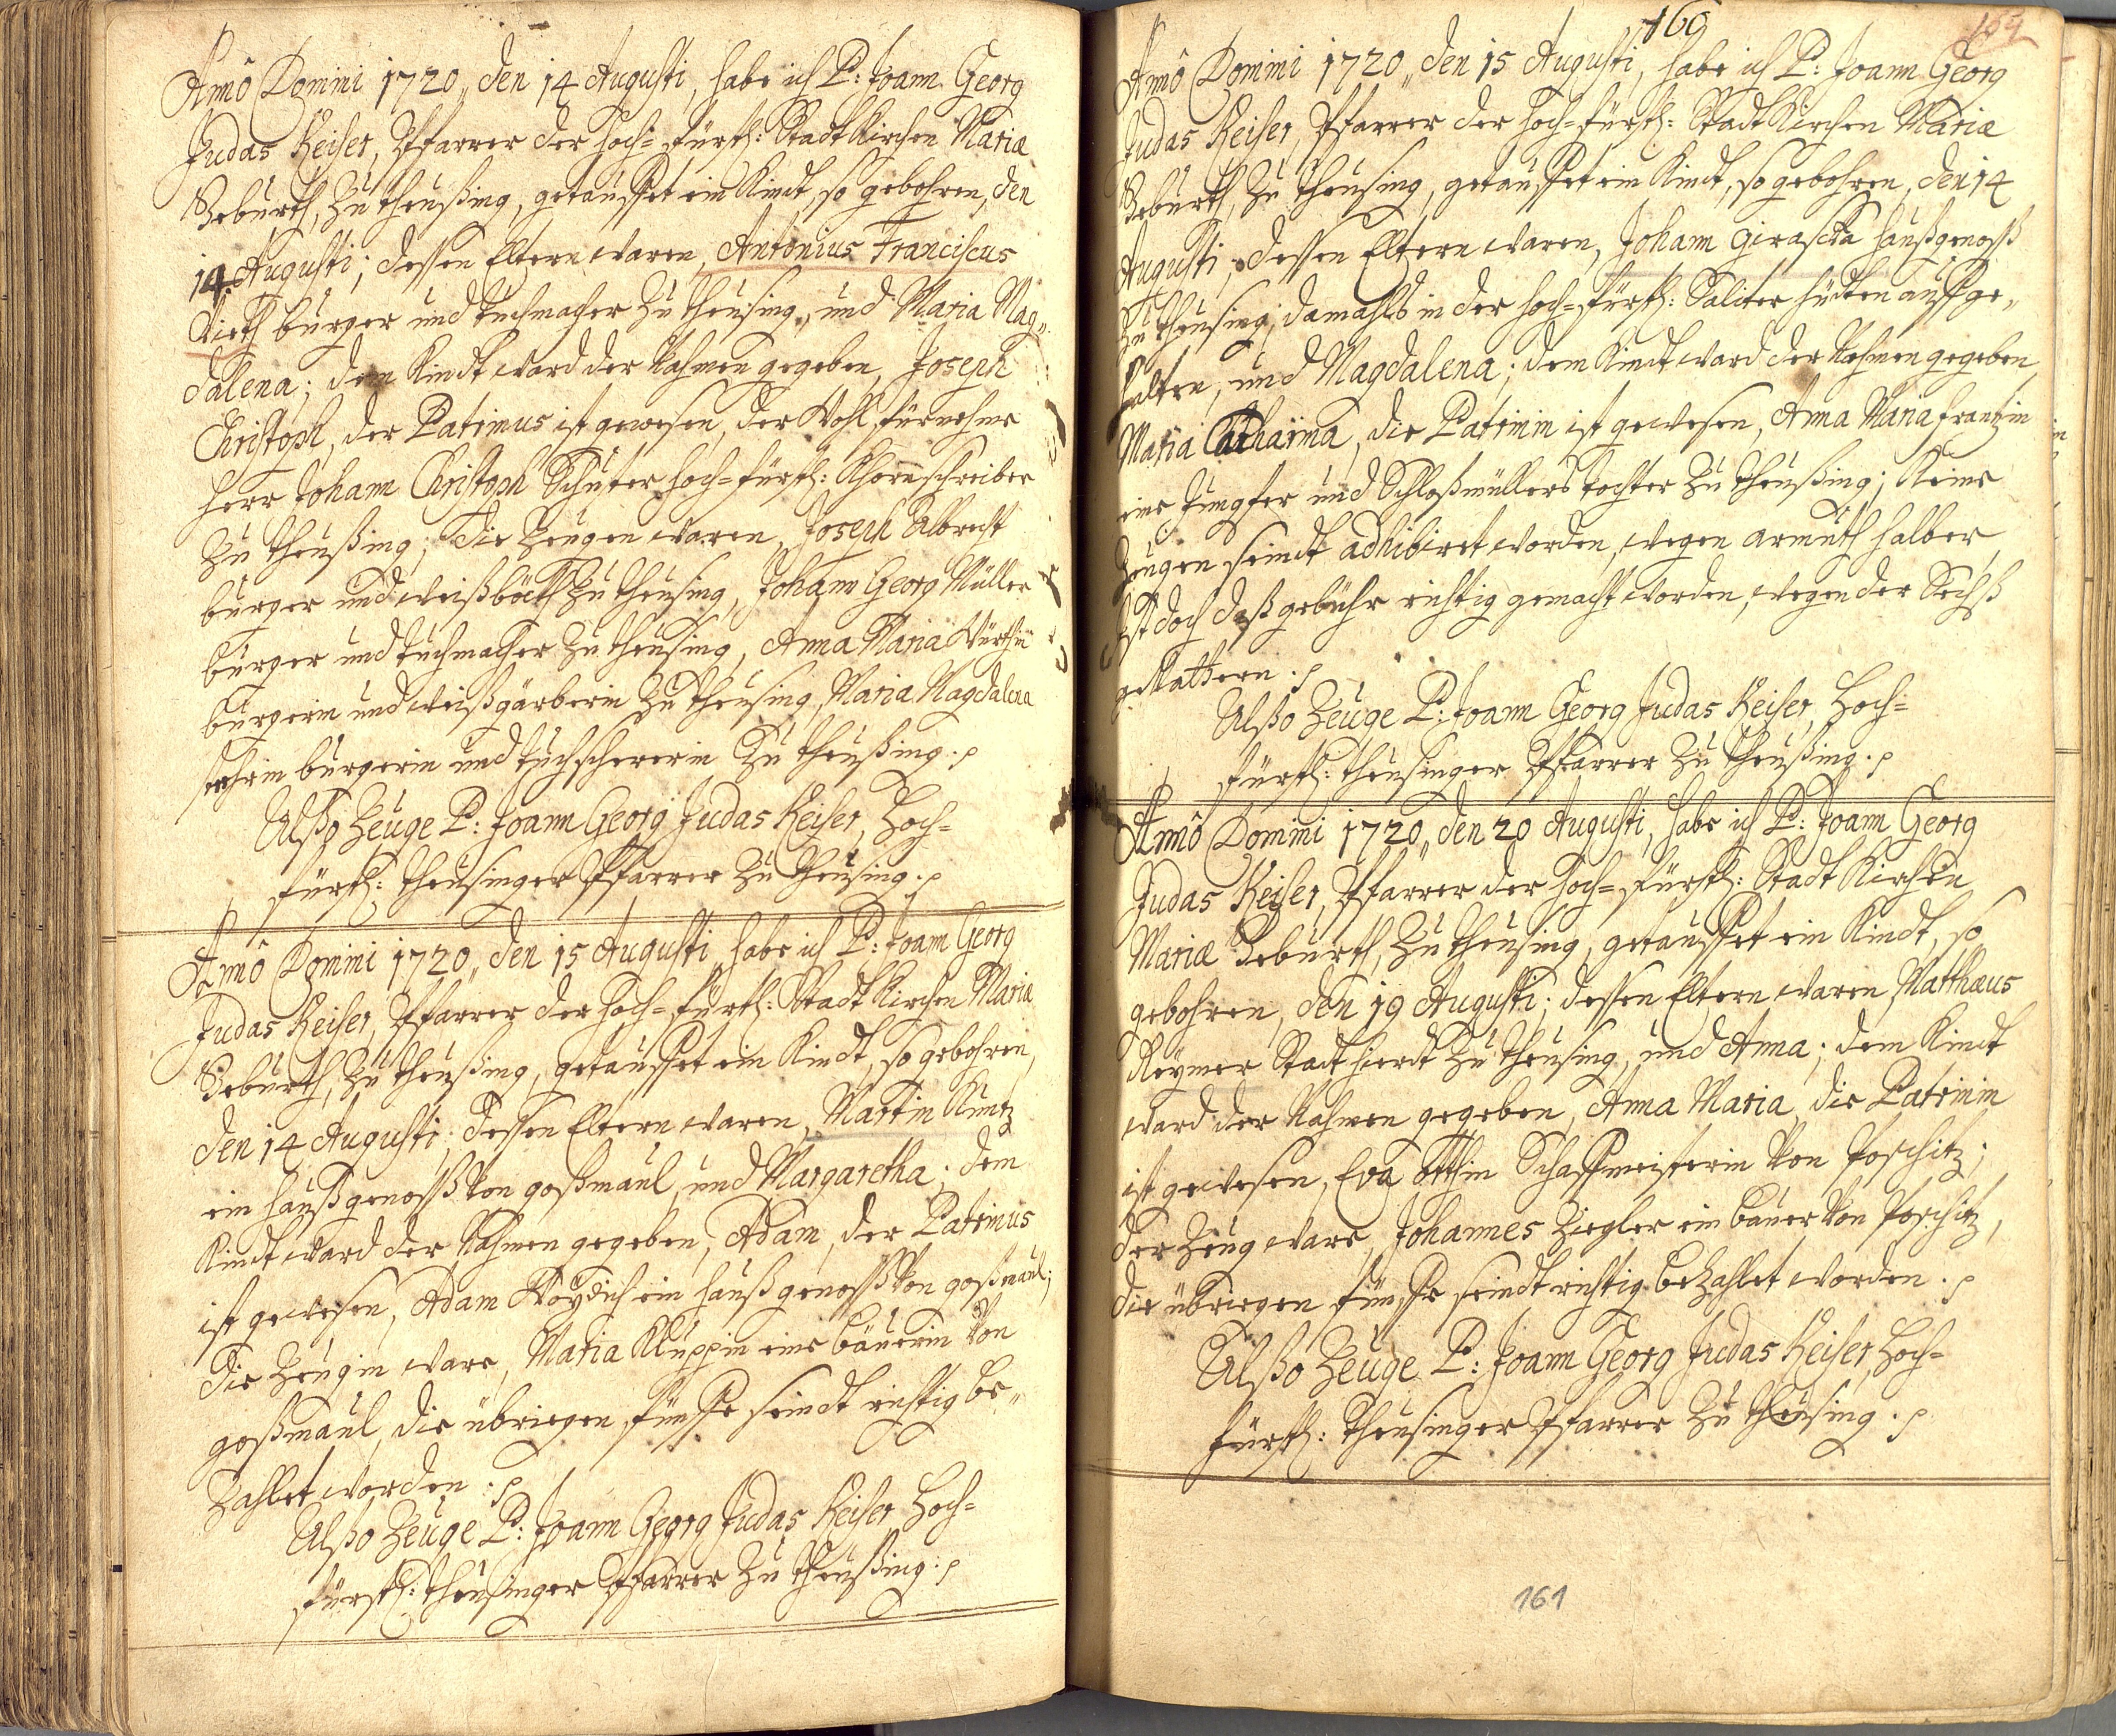 Annô Domini 1720, den 14 Augusti, habe ich P: Joann Georg
Judas Keiser, Pfarrer der Hoch-Fürstl: Stadt Kirchen Mariæ
Geburth, zu Theußing, getauffet ein Kindt, so gebohren, den
14 Augusti; dessen Eltern waren, Antonius Franciscus
Vieth burger und tuchmacher zu Theusing, und Maria Mag„
dalena; dem Kindt ward der Nahmen gegeben, Joseph
Christoph, der Patrinus ist gewesen, der Wohl fürnehme
Herr Johann Christoph Schuster Hoch-Fürstl: Khornschreiber
zu Theußing; Die Zeugen waren, Joseph Albrecht
burger und weißböckh zu Theusing, Johann Georg Müller
burger und tuchmacher zu Theusing, Anna Maria Würthin
burgerin und weißgärberin zu Theusing, Maria Magdalena
burgerin und tuchschererin zu Theußing.
Alßo Zeuge P: Joann Georg Judas Keiser, Hoch-
Fürstl: Theusinger Pfarrer zu Theusing.
Annô Domini 1720, den 15 Augusti, habe ich P: Joann Georg
Judas Keiser, Pfarrer der Hoch-Fürstl: Stadt Kirchen Mariæ
Geburth, zu Theußing, getauffet ein Kindt, so gebohren,
den 14 Augusti; dessen Eltern waren, Martin Kuntz
ein haußgenoß von goßmaul, und Margaretha; dem
Kindt ward der Nahmen gegeben, Adam, der Patrinus
ist gewesen, Adam ein haußgenoß von goßmaul;
die Zeugin ware, Maria Kluppin eine bäuerin von
goßmaul, die übriegen fünffe seindt richtig be„
zahlet worden.
Alßo Zeuge P: Joann Georg Judas Keiser Hoch-
Fürstl: Theusinger Pfarrer zu Theußing.
160
159
Annô Domini 1720, den 15 Augusti, habe ich P: Joann Georg
Judas Keiser, Pfarrer der Hoch-Fürstl: Stadt Kirchen Mariæ
Geburth, zu Theusing, getauffet ein Kindt, so gebohren, den 14
Augusti; dessen Eltern waren, Johann Girascka haußgenoß
zu Theusing, damahls in der Hoch-Fürstl: Saliter hütten auffge„
halten, und Magdalena; dem Kindt ward der Nahmen gegeben
Maria Catharina, die Patrinin ist gewesen, Anna Maria Frantzin
eine Jungfer und Schloßmüllers tochter zu Theußing; Keine
Zeugen seindt adhibiret worden, wegen armuth halber,
ist doch daß gebühr richtig gemacht worden, wegen der Sechß
gevattern.
Alßo Zeuge P: Joann Georg Judas Keiser, Hoch-
Fürstl: Theusinger Pfarrer zu Theußing.
Annô Domini 1720, den 20 Augusti, habe ich P: Joann Georg
Judas Keiser, Pfarrer der Hoch-Fürstl: Stadt Kirchen
Mariæ Geburth, zu Theusing, getauffet ein Kindt, so
gebohren, den 19 Augusti; dessen Eltern waren, Matthæus
Reymer Stadt hierdt zu Theusing, und Anna; dem Kindt
ward der Nahmen gegeben, Anna Maria, die Patrinin
ist gewesen, Eva Otthin Schaffmeisterin von Poschitz;
der Zeug ware, Johannes Ziegler ein bauer von Poschitz,
die übriegen fünffe seindt richtig bezahlet worden.
Alßo Zeuge P: Joann Georg Judas Keiser, Hoch-
Fürstl: Theusinger Pfarrer zu Theusing.
161